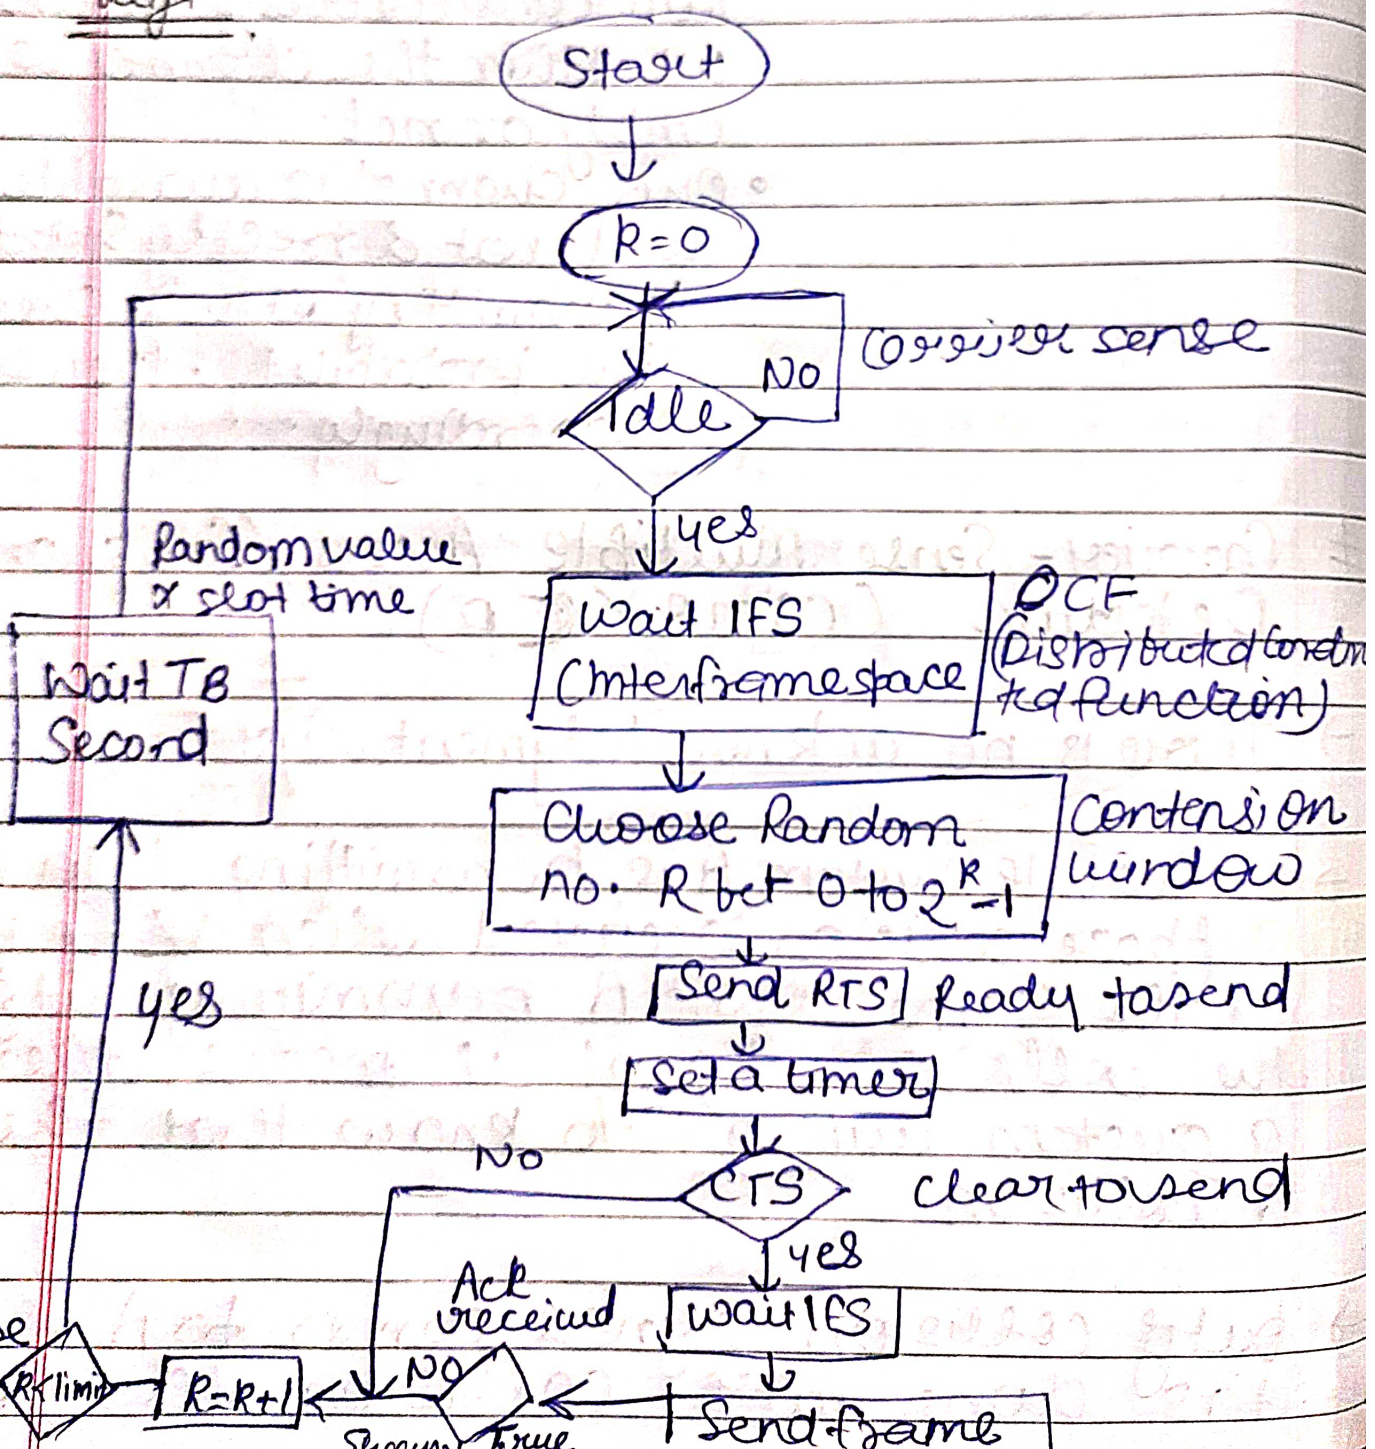 Start
K=0
Carrier sense
No
Idle
yes
Random value
x slot time
Wait IFS
(Interframe space
DCF
(Distributed
function)
Wait TB
Second
Choose Random
no. R bet 0 to 2^K-1
Contension
window
yes
Send RTS
Ready to send
Set a timer
No
CTS
Clear to send
yes
Ack
received
Wait IFS
K<limit
K=K+1
NO
True
Send frame